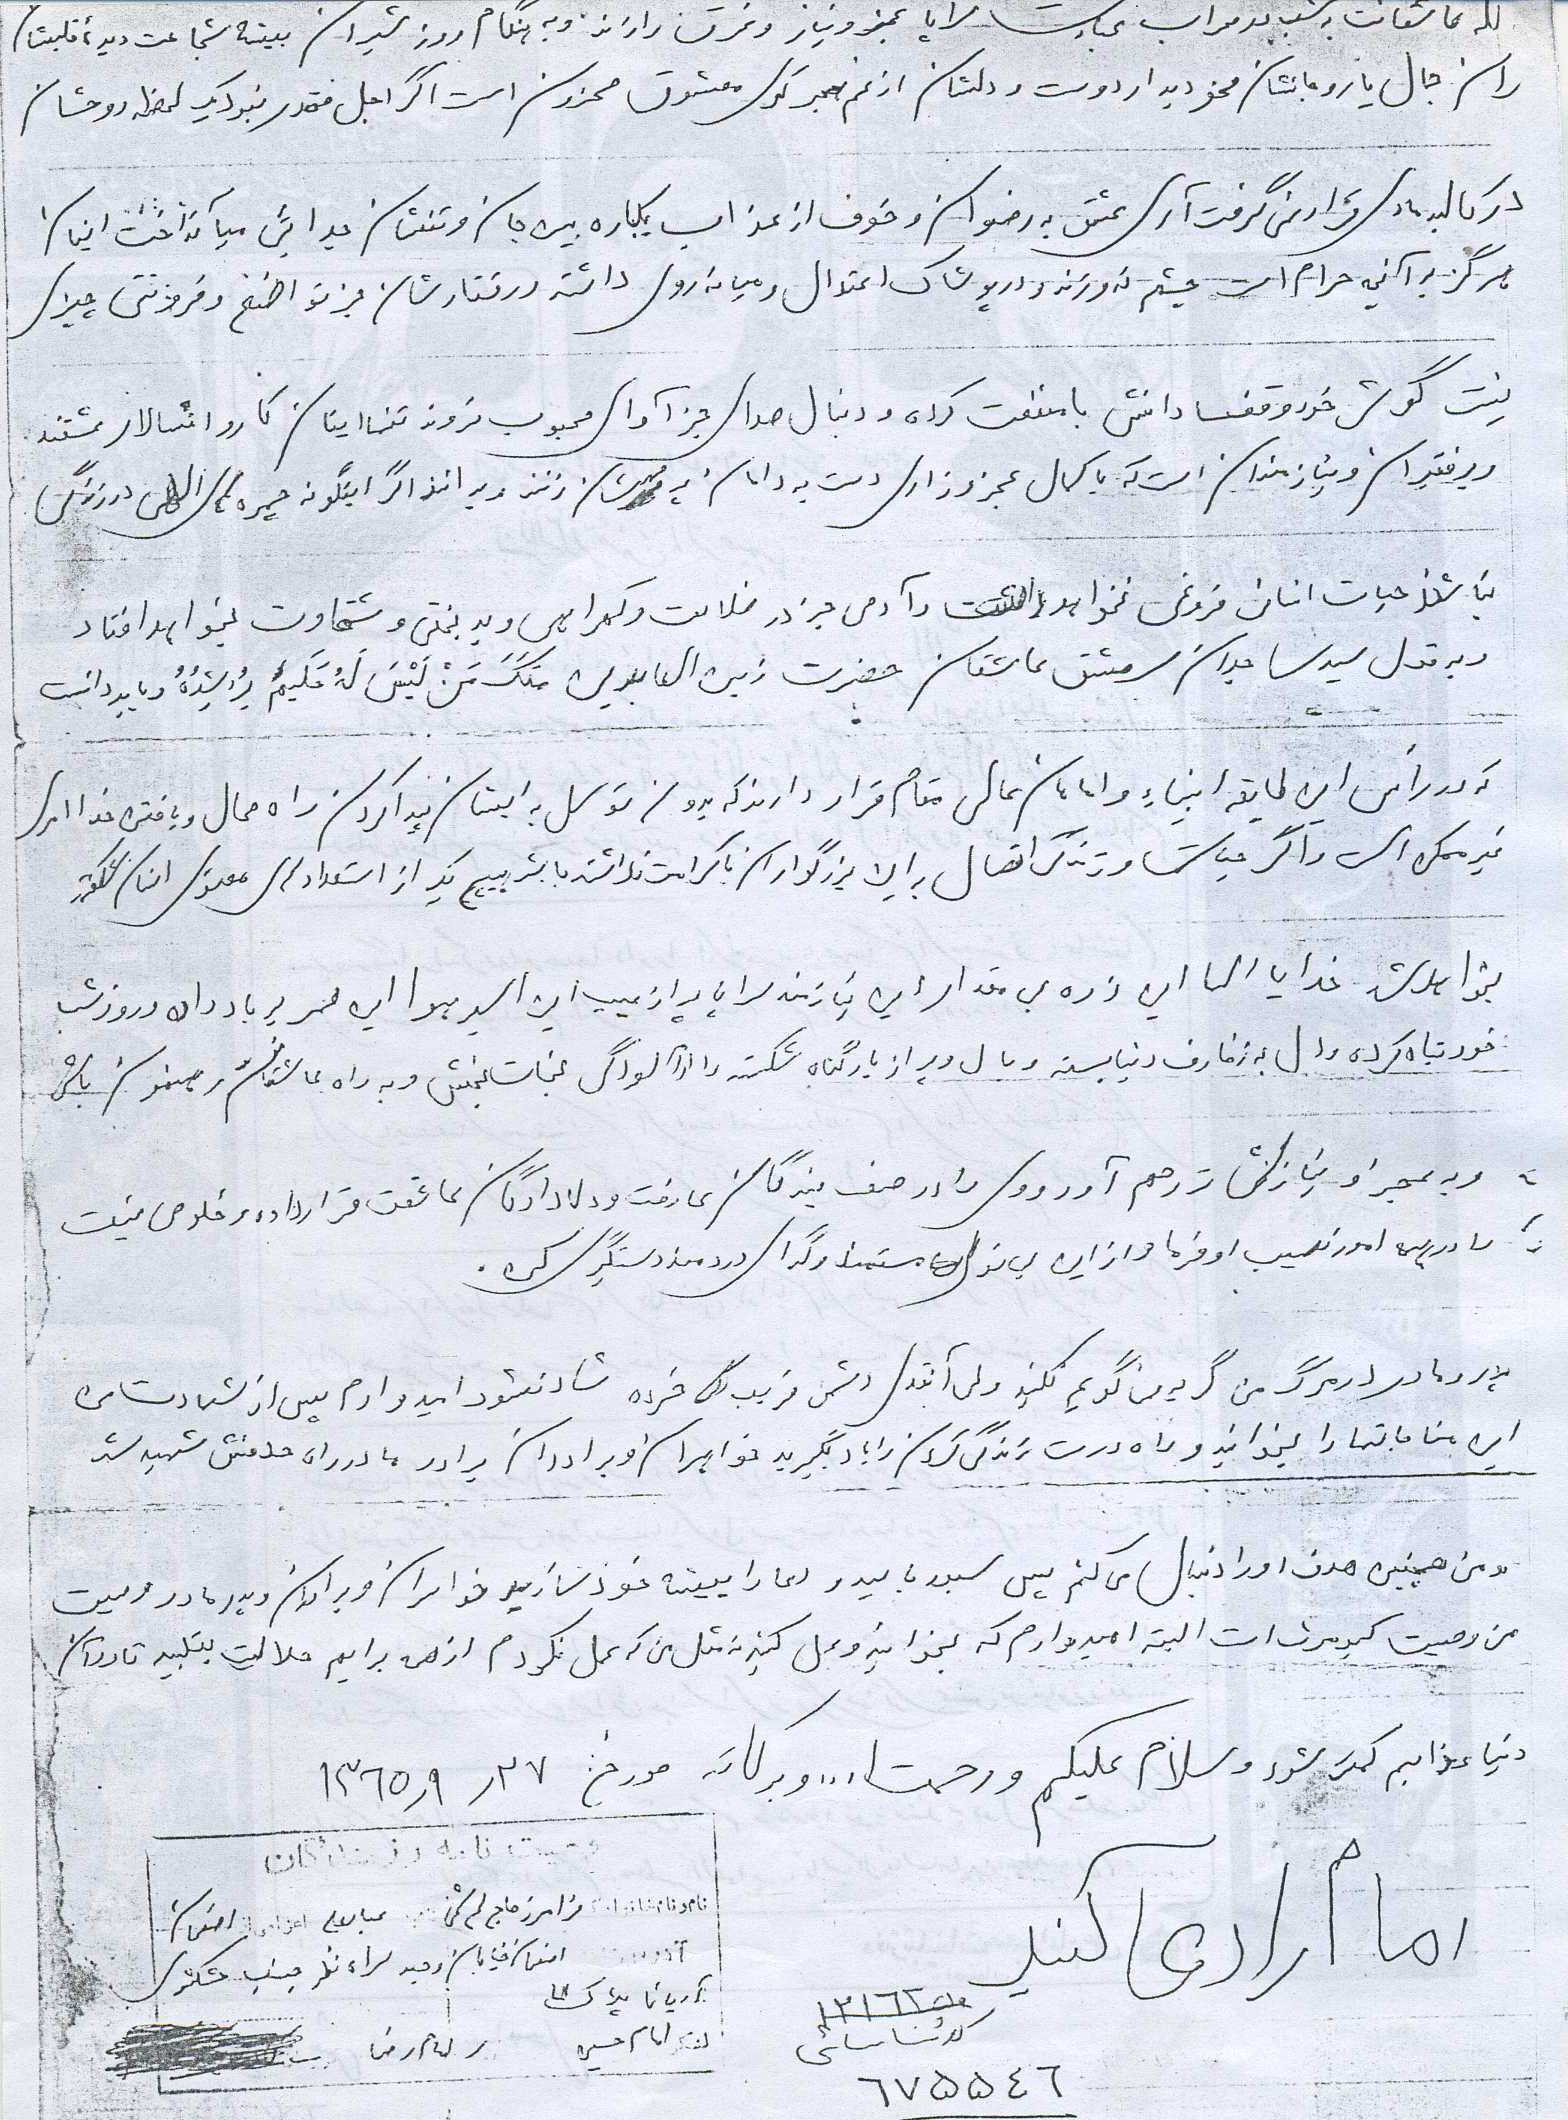 عاشقانت به شب در محراب عبادت سراپا عجز و نیاز و غرق رازند و به هنگام روز شیران بیشه شجاعت دیده قلبشان
را از جمال یار و جانشان محو دیدار دوست و دلشان از غم هجر کوی معشوق محزون است اگر اجل مقدر نبود یک لحظه روحشان
در کالبد مادی قرار نمی گرفت آری عشق به رضوان و خوف از عذاب یکباره بین جان و تنشان جدائی می انداخت اینان
هرگز بر آنچه حرام است چشم ندوزند و در پوشاک اعتدال و میانه روی داشته و رفتارشان جز تواضع و فروتنی چیزی
نیست گوش خود وقف دانش با منفعت کرده و دنبال صدای جز آوای محبوب نروند تنها اینان کاروانسالار عشقند
و بر فقیران و نیازمندان است که با کمال عجز و زاری دست به دامان پر مهرشان زنند و بدانند اگر اینگونه چهره های الهی در زندگی
نباشند حیات انسان فروغی نخواهد داشت و آدمی جز در ضلالت و گمراهی و بدبختی و شقاوت نخواهد افتاد
و به قول سید ساجدان سرمشق عاشقان حضرت زین العابدین هَلَکَ مَنْ لَیْسَ لَهُ حَکیمٌ یُرْشِدُهُ و باید دانست
که در رأس این طایفه انبیاء و امامان عالی مقام قرار دارند که بدون توسل به ایشان پیدا کردن راه محال و یافتن خدا امری
غیر ممکن است و اگر حیات و زندگی اتصال به این بزرگواران با کرامت نداشته باشد هیچ یک از استعدادهای معنوی انسان شکوفه
نخواهد شد خدایا الها این ذره بی مقدار این نیازمند سراپا پر از عیب این اسیر هوا این عمر بر باد داده و روز شب
خود تباه کرده و دل به زخارف دنیا بسته و بال و پر از بار گناه شکسته را از آلودگی نجات بخش و به راه عاشقانت رهنمون باش
و به عجز او و نیازش ترحم آور و وی را در صف بندگان عارفت و دلدادگان عاشقت قرار داده و خلوص نیت
را در همه امور نصیب او فرما و از این بی نوای مستمند و گدای دردمند دستگیری کن.
پدر و مادر در مرگ من گریه من نگویم نکنید ولی آنقدر دشمن فریب خورده شاد نشود امیدوارم پس از شهادت من
این مناجاتها را بخوانید و راه درست زندگی کردن را یاد بگیرید خواهران و برادران برادر ما در راه هدفش شهید شد
و من همچنین هدف او را دنبال می کنم پس صبور باشید و دعا را پیشه خود سازید خواهران و برادران و پدر مادر وصیت
من وصیت کمیل است البته امیدوارم که بخوانید و عمل کنید نه مثل من که عمل نکردم از همه برایم حلالیت بطلبید تا در آن
دنیا عذابم کمتر شود و سلام علیکم و رحمت ا... و برکاته مورخ ۲۷ر۹ر۱۳٦۵
امام را دعا کنید
وصیت نامه رزمندگان
اعزامی از اصفهان
اصفهان خیابان وحید سه راه نظر جنب خشکشوئی
آریانا پلاک
لشکر امام حسین
ر امام رضا
۱۲۱٦۲
کد شناسائی
٦۷۵۵٤٦